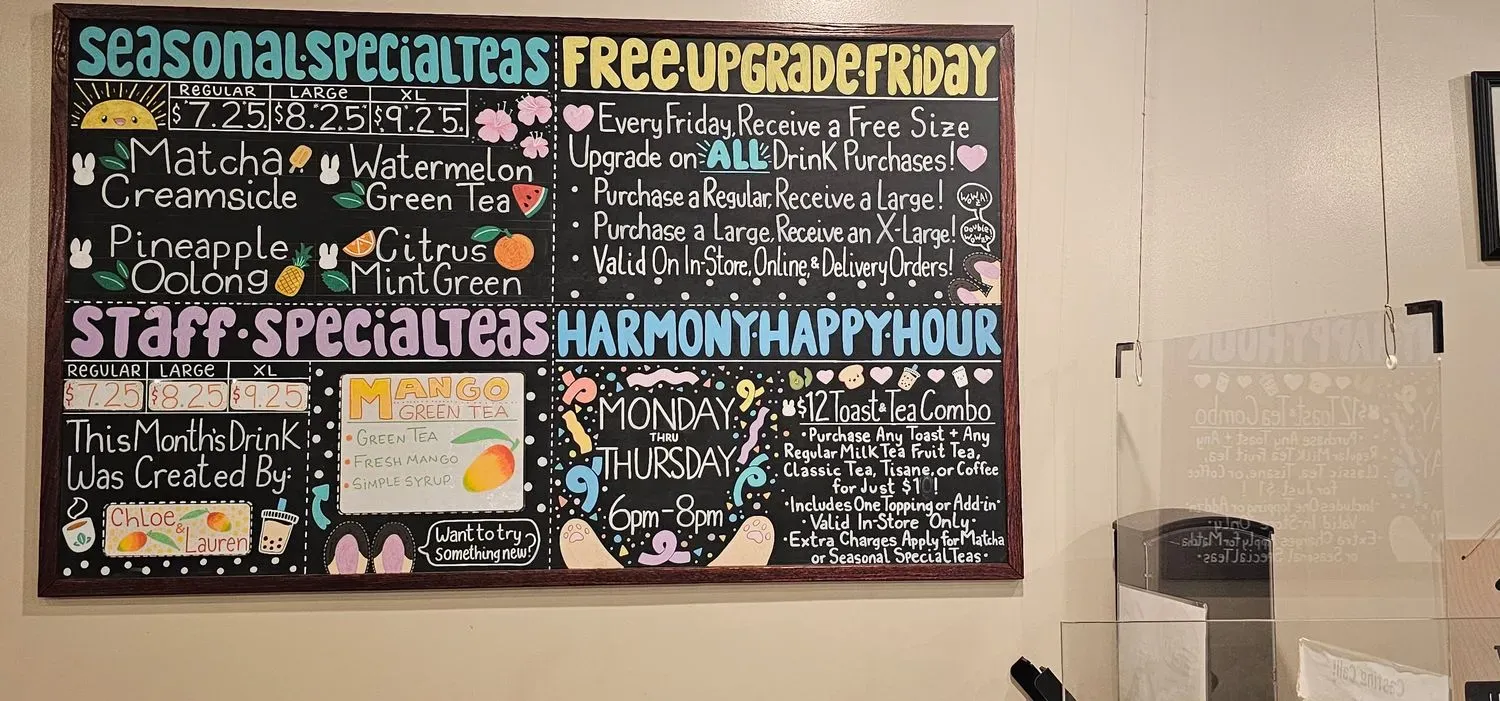 SEASONAL·SPECIALTEAS
REGULAR LARGE XL
$7.25 $8.25 $9.25
Matcha
Creamsicle
Watermelon
Green Tea
Pineapple
Oolong
Citrus
Mint Green
FREE·UPGRADE·FRIDAY
Every Friday, Receive a Free Size
Upgrade on ALL Drink Purchases!
• Purchase a Regular, Receive a Large!
• Purchase a Large, Receive an X-Large!
• Valid On In-Store, Online, & Delivery Orders!
STAFF·SPECIALTEAS
REGULAR LARGE XL
$7.25 $8.25 $9.25
This Month's Drink
Was Created By:
Chloe
&
Lauren
MANGO
GREEN TEA
• GREEN TEA
• FRESH MANGO
• SIMPLE SYRUP
Want to try
something new?
HARMONY·HAPPY·HOUR
MONDAY
THRU
THURSDAY
6pm-8pm
$12 Toast & Tea Combo
• Purchase Any Toast + Any
Regular Milk Tea Fruit Tea,
Classic Tea, Tisane, or Coffee
for Just $1 !
• Includes One Topping or Add-in •
• Valid In-Store Only •
• Extra Charges Apply for Matcha
or Seasonal SpecialTeas •
Casting Call!